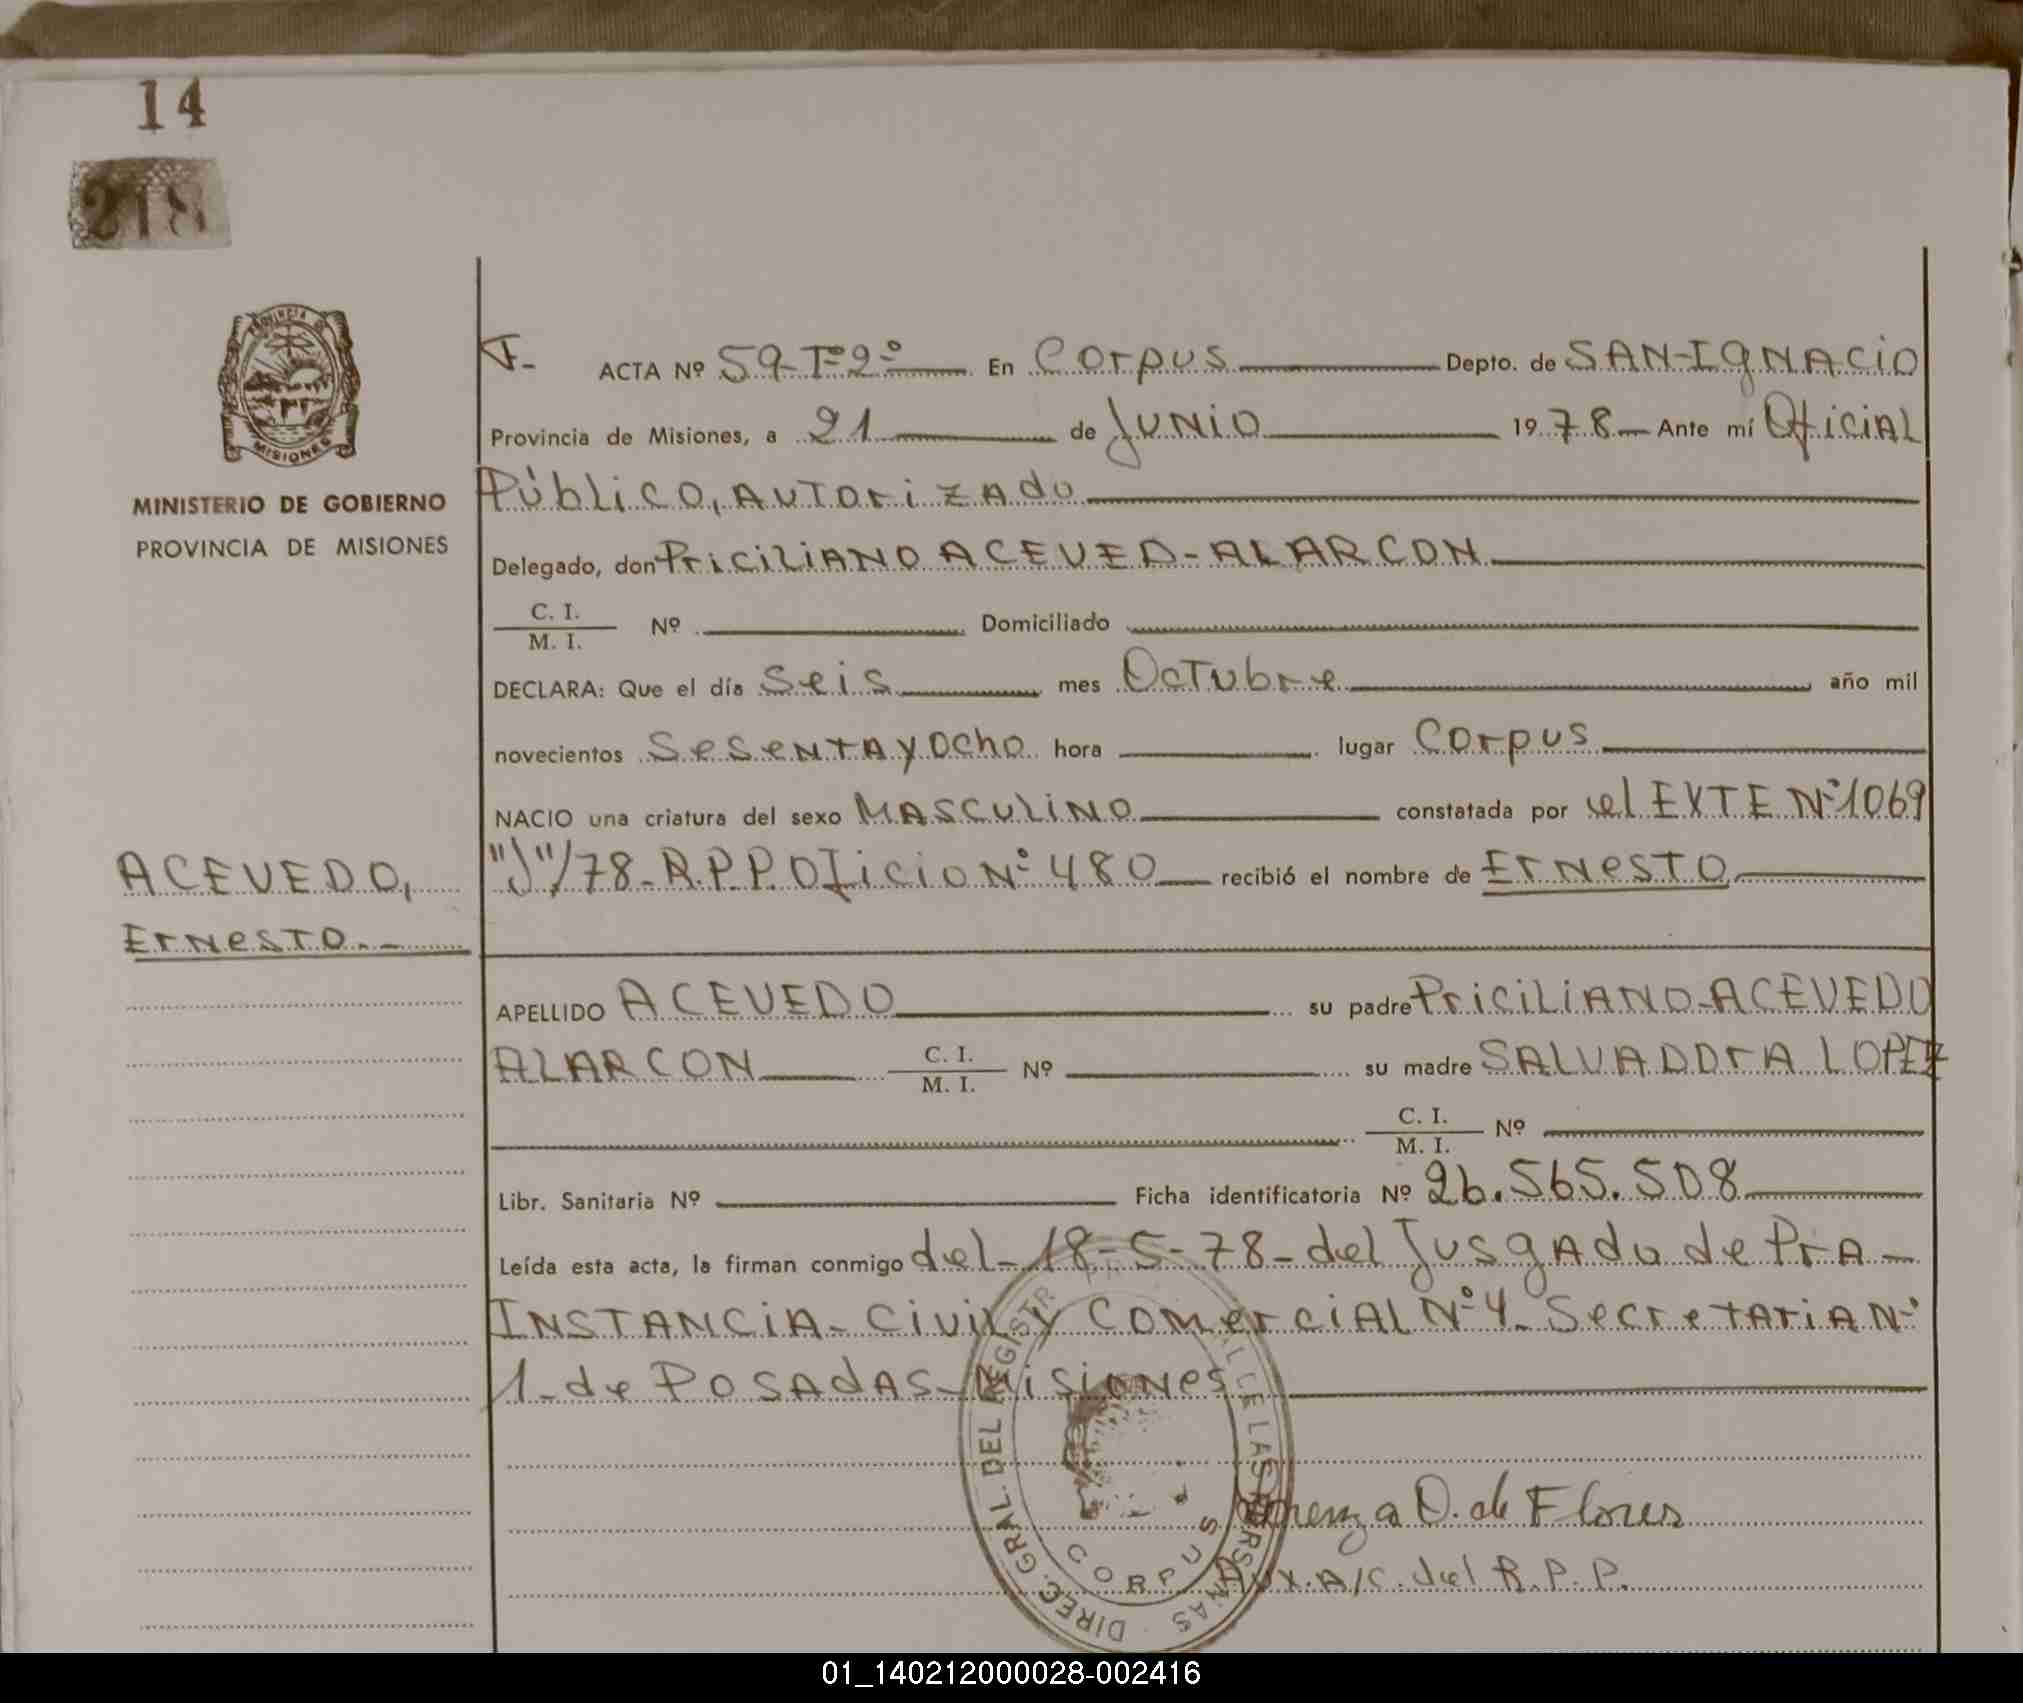 14
218
PROVINCIA DE
MISIONES
MINISTERIO DE GOBIERNO
PROVINCIA DE MISIONES
ACTA Nº 59-Tº2º En Corpus Depto. de SAN-IgNACiO
Provincia de Misiones, a 21 de JUNiO 1978 Ante mí OficiAL
Público, AUTOriZAdo
Delegado, don PriCiLiANO ACEVED-ALARCON
C. I.
M. I. Nº Domiciliado
DECLARA: Que el día Seis mes OcTubre año mil
novecientos SeSeNTAyOcho hora lugar Corpus
NACIO una criatura del sexo MASCULiNO constatada por el EXTE Nº1069
"J"/78-R.P.P. OficiO Nº 480 recibió el nombre de ErNeSTO
ACEVEDO,
ErNeSTO.-
APELLIDO ACEVEDO su padre PriCiLiANO-ACEVEDO
ALARCON C. I.
M. I. Nº su madre SALVADOrA LOPEZ
C. I.
M. I. Nº
Libr. Sanitaria Nº Ficha identificatoria Nº 26.565.508
Leída esta acta, la firman conmigo del-18-5-78-del JusgAdo de PrA-
INSTANCiA-Civil y COMerciAL Nº4-SecreTAriA Nº
1-de POSAdAS-MisiONes
DIREC. GRAL. DEL REGISTR
DE LAS PERSONAS
CORPUS
O. de Flores
Aux. A/C. del R.P.P.
01_140212000028-002416